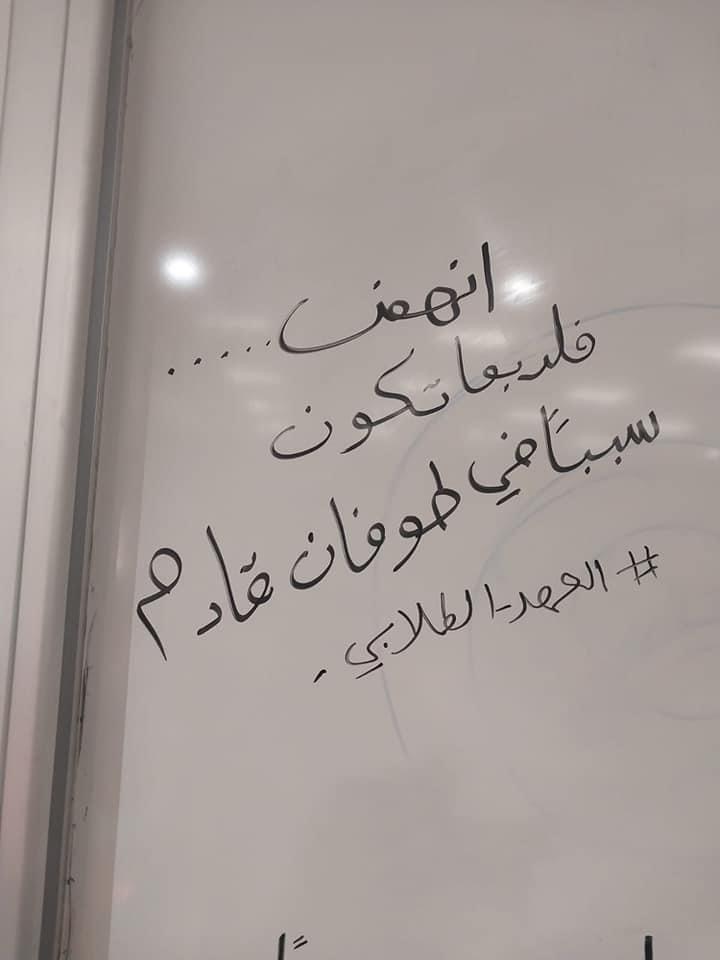 انهض.....
فلربما تكون
سببًا في طوفان قادم
# العهد_الطلابي.